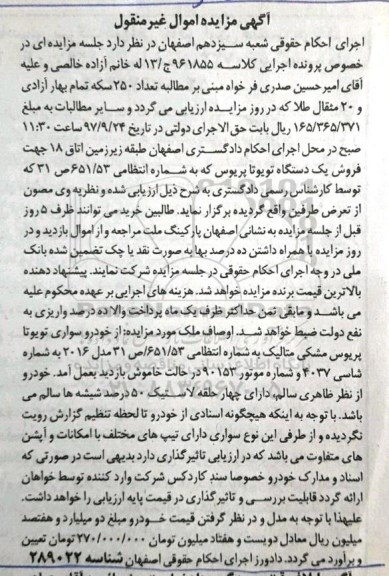 آگهی مزایده اموال غیرمنقول
اجرای احکام حقوقی شعبه سیزدهم اصفهان در نظر دارد جلسه مزایده ای در
خصوص پرونده اجرایی کلاسه ۹۶۱۸۵۵ ج/۱۳ له خانم آزاده خالصی و علیه
آقای امیرحسین صدری فر خواه مبنی بر مطالبه تعداد ۲۵۰ سکه تمام بهار آزادی
و ۲۰ مثقال طلا که در روز مزایده ارزیابی می گردد و سایر مطالبات به مبلغ
۱۶۵/۳۶۵/۳۷۱ ریال بابت حق الاجرای دولتی در تاریخ ۹۷/۹/۲۴ ساعت ۱۱:۳۰
صبح در محل اجرای احکام دادگستری اصفهان طبقه زیرزمین اتاق ۱۸ جهت
فروش یک دستگاه تویوتا پریوس که به شماره انتظامی ۶۵۱/۵۳ ص ۳۱ که
توسط کارشناس رسمی دادگستری به شرح ذیل ارزیابی شده و نظریه وی مصون
از تعرض طرفین واقع گردیده برگزار نماید. طالبین خرید می توانند ظرف ۵ روز
قبل از جلسه مزایده به نشانی اصفهان پارکینگ ملت مراجعه و از اموال بازدید و در
روز مزایده با همراه داشتن ده درصد بها به صورت نقد یا چک تضمین شده بانک
ملی در وجه اجرای احکام حقوقی در جلسه مزایده شرکت نمایند. پیشنهاد دهنده
بالاترین قیمت برنده مزایده خواهد شد. هزینه های اجرایی بر عهده محکوم علیه
می باشد و مابقی ثمن حداکثر ظرف یک ماه پرداخت والا ده درصد واریزی به
نفع دولت ضبط خواهد شد. اوصاف ملک مورد مزایده: از خودرو سواری تویوتا
پریوس مشکی متالیک به شماره انتظامی ۶۵۱/۵۳ص ۳۱ مدل ۲۰۱۶ به شماره
شاسی ۴۰۳۷ و شماره موتور ۹۰۱۵۳ در حالت خاموش بازدید بعمل آمد. خودرو
از نظر ظاهری سالم، دارای چهار حلقه لاستیک ۵۰ درصد شیشه ها سالم می
باشد. با توجه به اینکه هیچگونه اسنادی از خودرو تا لحظه تنظیم گزارش رویت
نگردیده و از طرفی این نوع سواری دارای تیپ های مختلف با امکانات و آپشن
های متفاوت می باشد که در ارزیابی تاثیرگذاری دارد بدیهی است در صورتی که
اسناد و مدارک خودرو خصوصا سند کاردکس شرکت وارد کننده توسط خواهان
ارائه گردد قابلیت بررسی و تاثیرگذاری در قیمت پایه ارزیابی را خواهد داشت.
علیهذا با توجه به مدل و در نظر گرفتن قیمت خودرو مبلغ دو میلیارد و هفتصد
میلیون ریال معادل دویست و هفتاد میلیون تومان ۲۷۰/۰۰۰/۰۰۰ تومان تعیین
و برآورد می گردد. دادورز اجرای احکام حقوقی اصفهان شناسه ۲۸۹۰۲۲